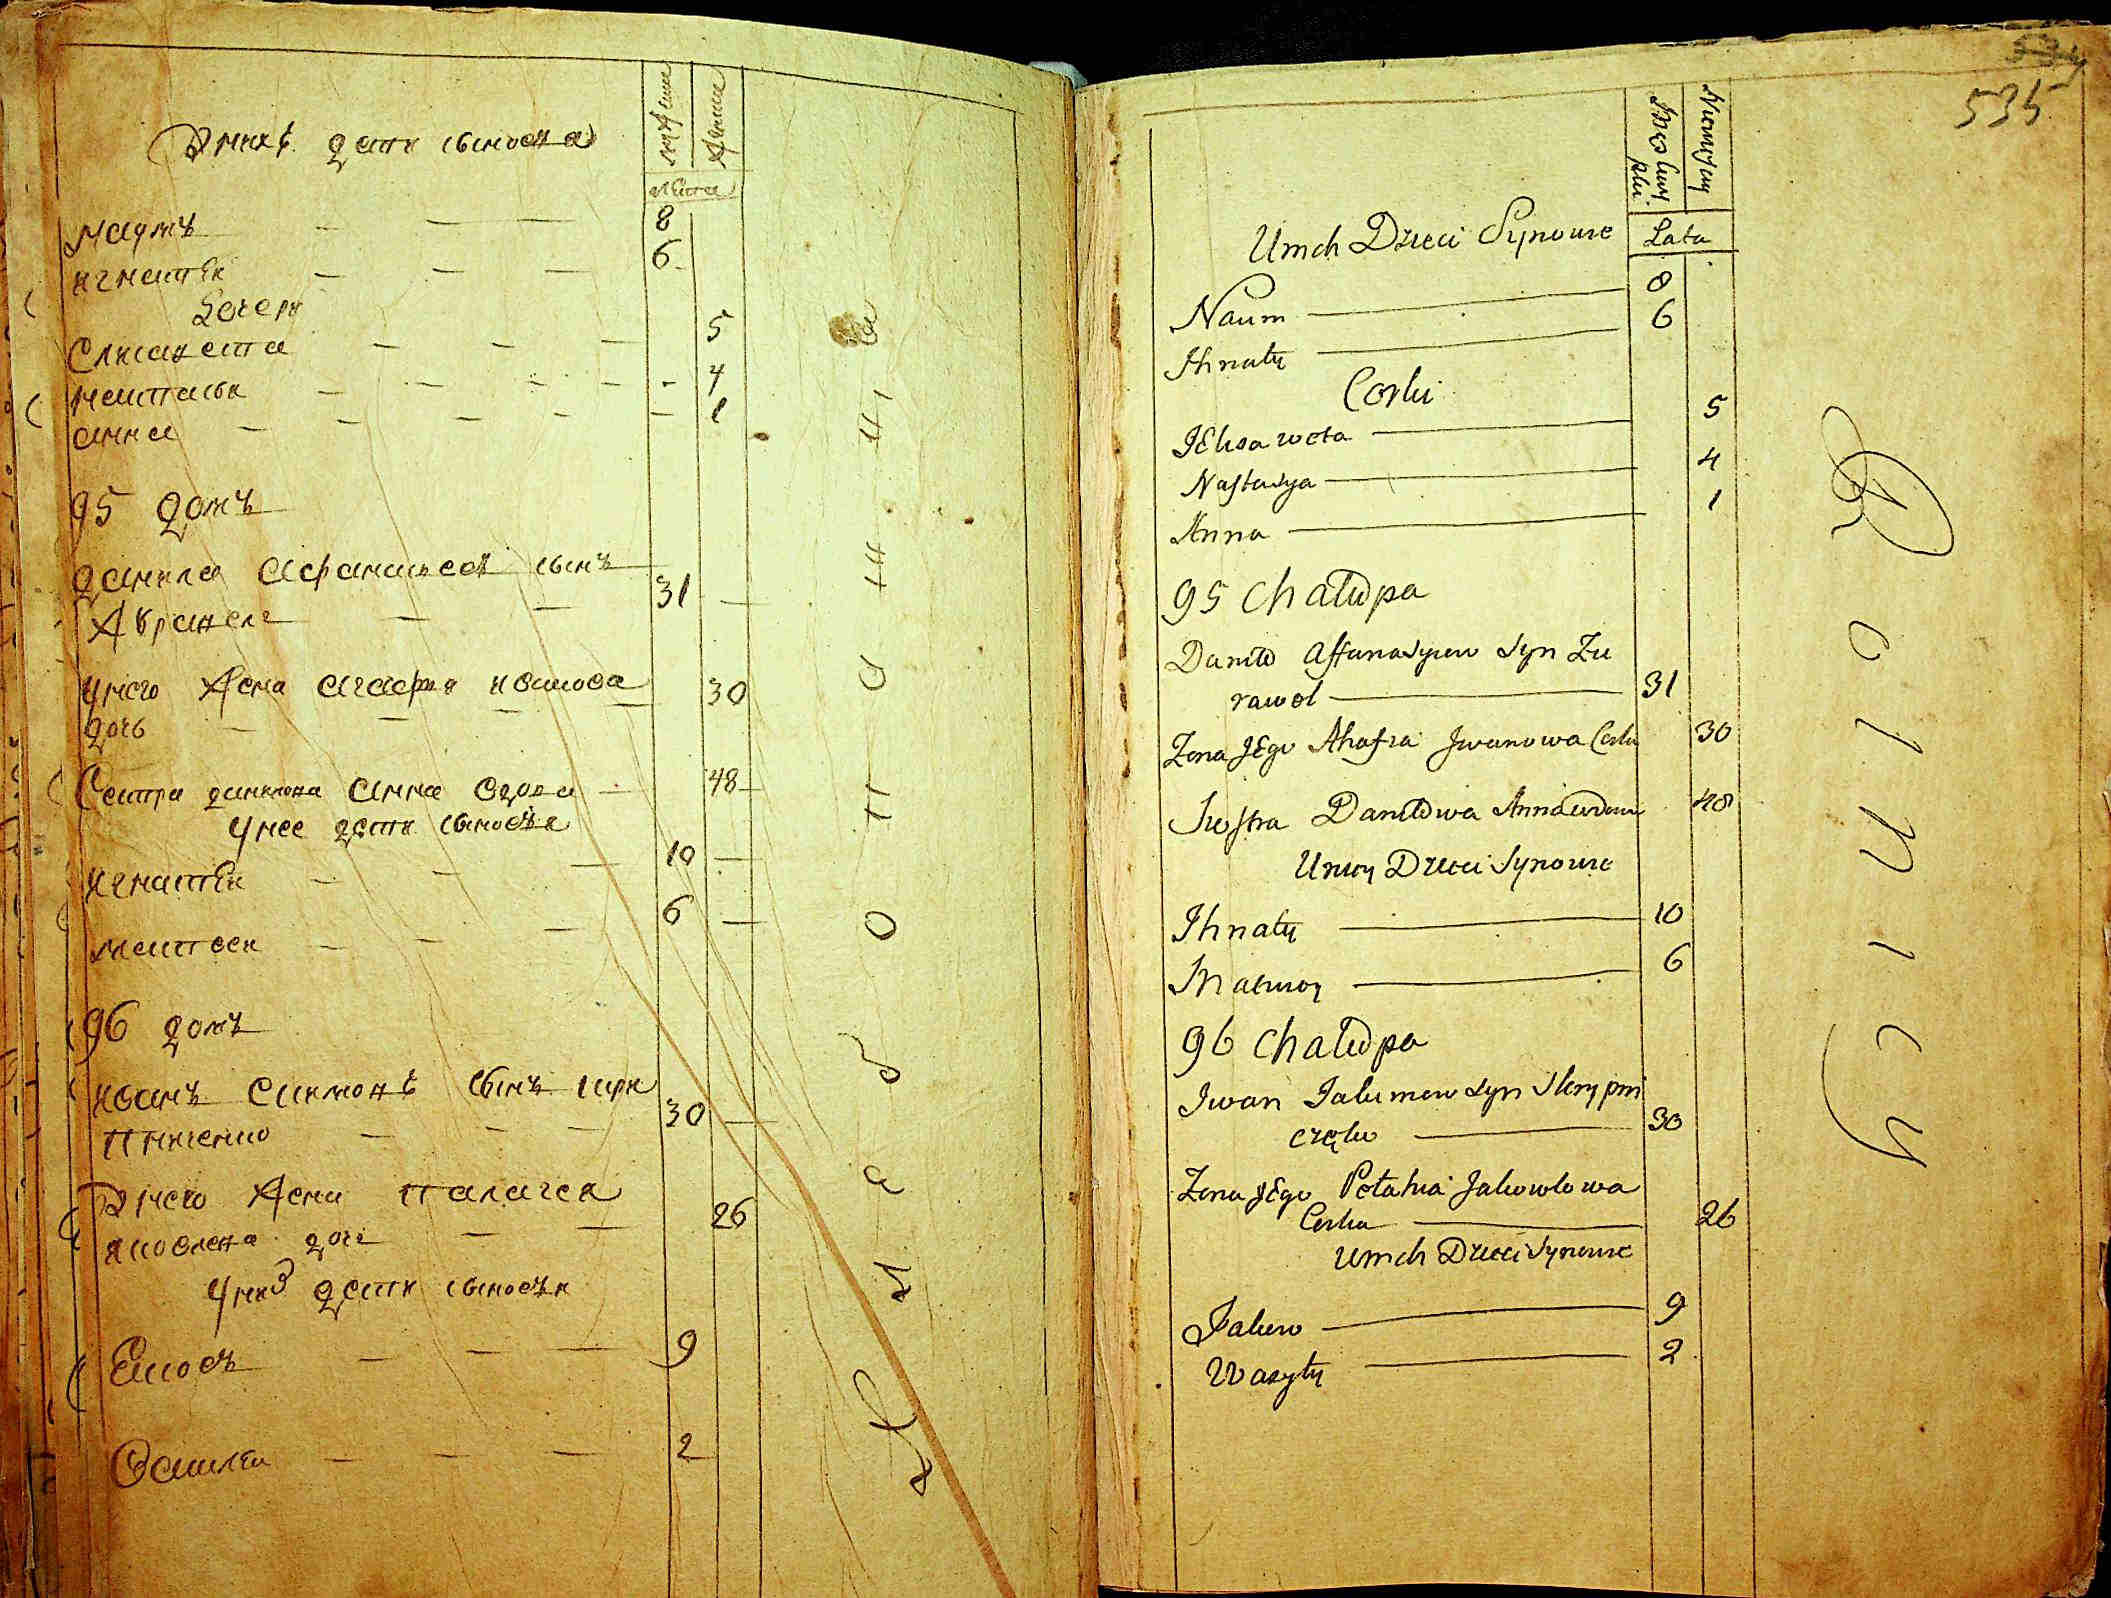 У нихъ дети сыновья
мужска
женска
лета
Наумъ 8
Игнатей 6
Дочери
Елисавета 5
Настасья 4
Анна 1
95 домъ
Данила Афанасьевъ сынъ
Журавель 31
У него жена Агафия Иванова 30
дочь
Сестра Данилова Анна вдова 48
У нее дети сыновья
Игнатей 10
Матвей 6
96 домъ
Иванъ Екимовъ сынъ
30
У него жена Палагея
Яковлева дочь 26
У них дети сыновья
Яковъ 9
Василей 2
535
Lata
Umch Dzieci Synowie
Naum 8
Ihnaty 6
Corki
JElisaweta 5
Nastasya 4
Anna 1
95 Chałupa
Daniło Affanasyiew Syn Zu
rawel 31
Zona JEgo Ahafia Jwanowa Corka 30
Siostra Daniłowa Anna wdowa 48
Uniey Dzieci Synowie
Ihnaty 10
Matwiey 6
96 Chałupa
Iwan Jakimow Syn Skrypni
częko 30
Zona JEgo Pełahia Jakowlowa
Corka 26
Umch Dzieci Synowie
Jakow 9
Wasyły 2
Rolnicy